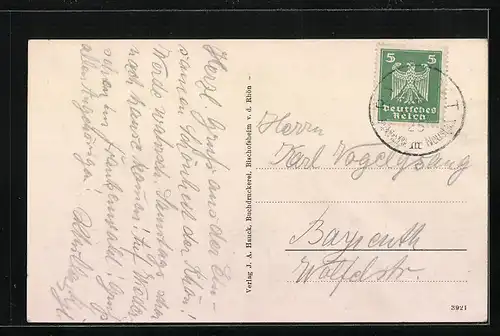 Herzl. Gruß aus der Ein-
samen Schönheit der Rhön!
Werde Samstag schon
nach Hause kommen! Auf Wieder-
sehen im Frankenwald! Gruß
allen Angehörigen!
Verlag J. A. Hauck, Buchdruckerei, Bischofsheim v. d. Rhön
5 5
Deutsches
Reich
T
Herrn
Karl Vogelgsang
Bayreuth
Wölfelstr
3921